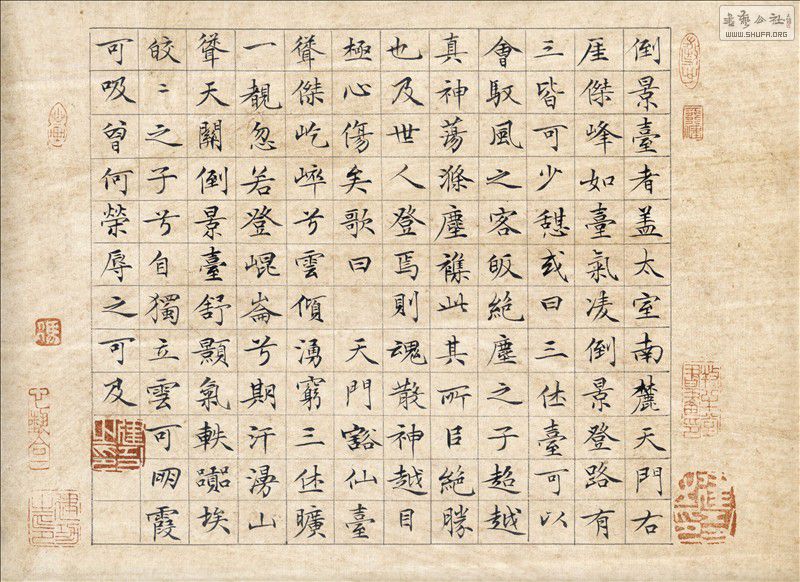 倒景臺者盖太室南麓天門右
厓傑峰如臺氣凌倒景登路有
三皆可少憩或曰三休臺可以
會馭風之客皈絶塵之子超越
真神蕩滌塵襍此其所㠯絶勝
也及世人登焉則魂散神越目
極心傷矣歌曰 天門豁仙臺
聳傑屹崪兮雲傾湧窮三休曠
一覩忽若登崐崙兮期汗湧山
聳天關倒景臺舒顥氣軼嚻埃
皎〻之子兮自獨立雲可朙霞
可吸曾何榮辱之可及
書藝公社
WWW.SHUFA.ORG